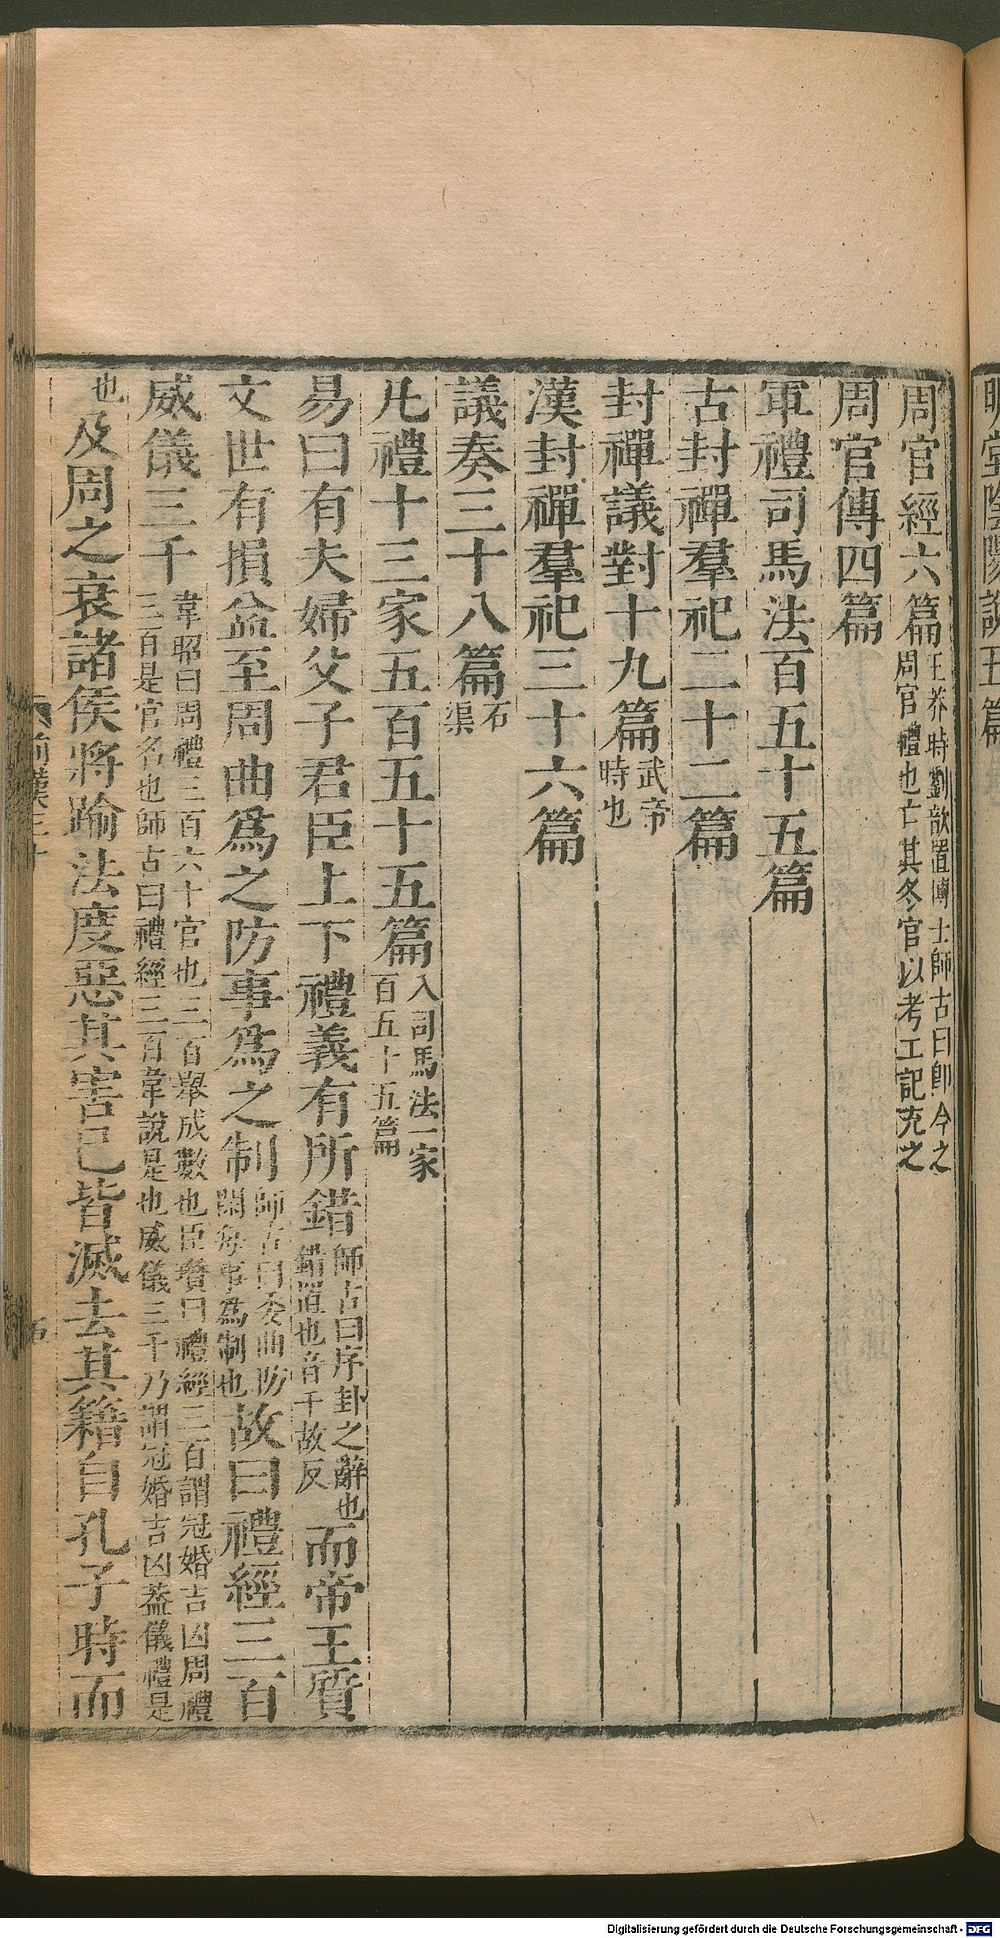 明堂陰陽說五篇
周官經六篇王莽時劉歆置博士師古曰即今之周官禮也亡其冬官以考工記充之
周官傳四篇
軍禮司馬法百五十五篇
古封禪羣祀二十二篇
封禪議對十九篇武帝時也
漢封禪羣祀三十六篇
議奏三十八篇石渠
凡禮十三家五百五十五篇入司馬法一家百五十五篇
易曰有夫婦父子君臣上下禮義有所錯師古曰序卦之辭也錯置也音千故反而帝王質
文世有損益至周曲爲之防事爲之制師古曰委曲防閑每事爲制也故曰禮經三百
威儀三千韋昭曰周禮三百六十官也三百舉成數也臣瓚曰禮經三百謂冠婚吉凶周禮三百是官名也師古曰禮經三百韋說是也威儀三千乃謂冠婚吉凶葢儀禮是
也及周之衰諸侯將踰法度惡其害已皆滅去其籍自孔子時而
前漢三十
Digitalisierung gefördert durch die Deutsche Forschungsgemeinschaft - DFG